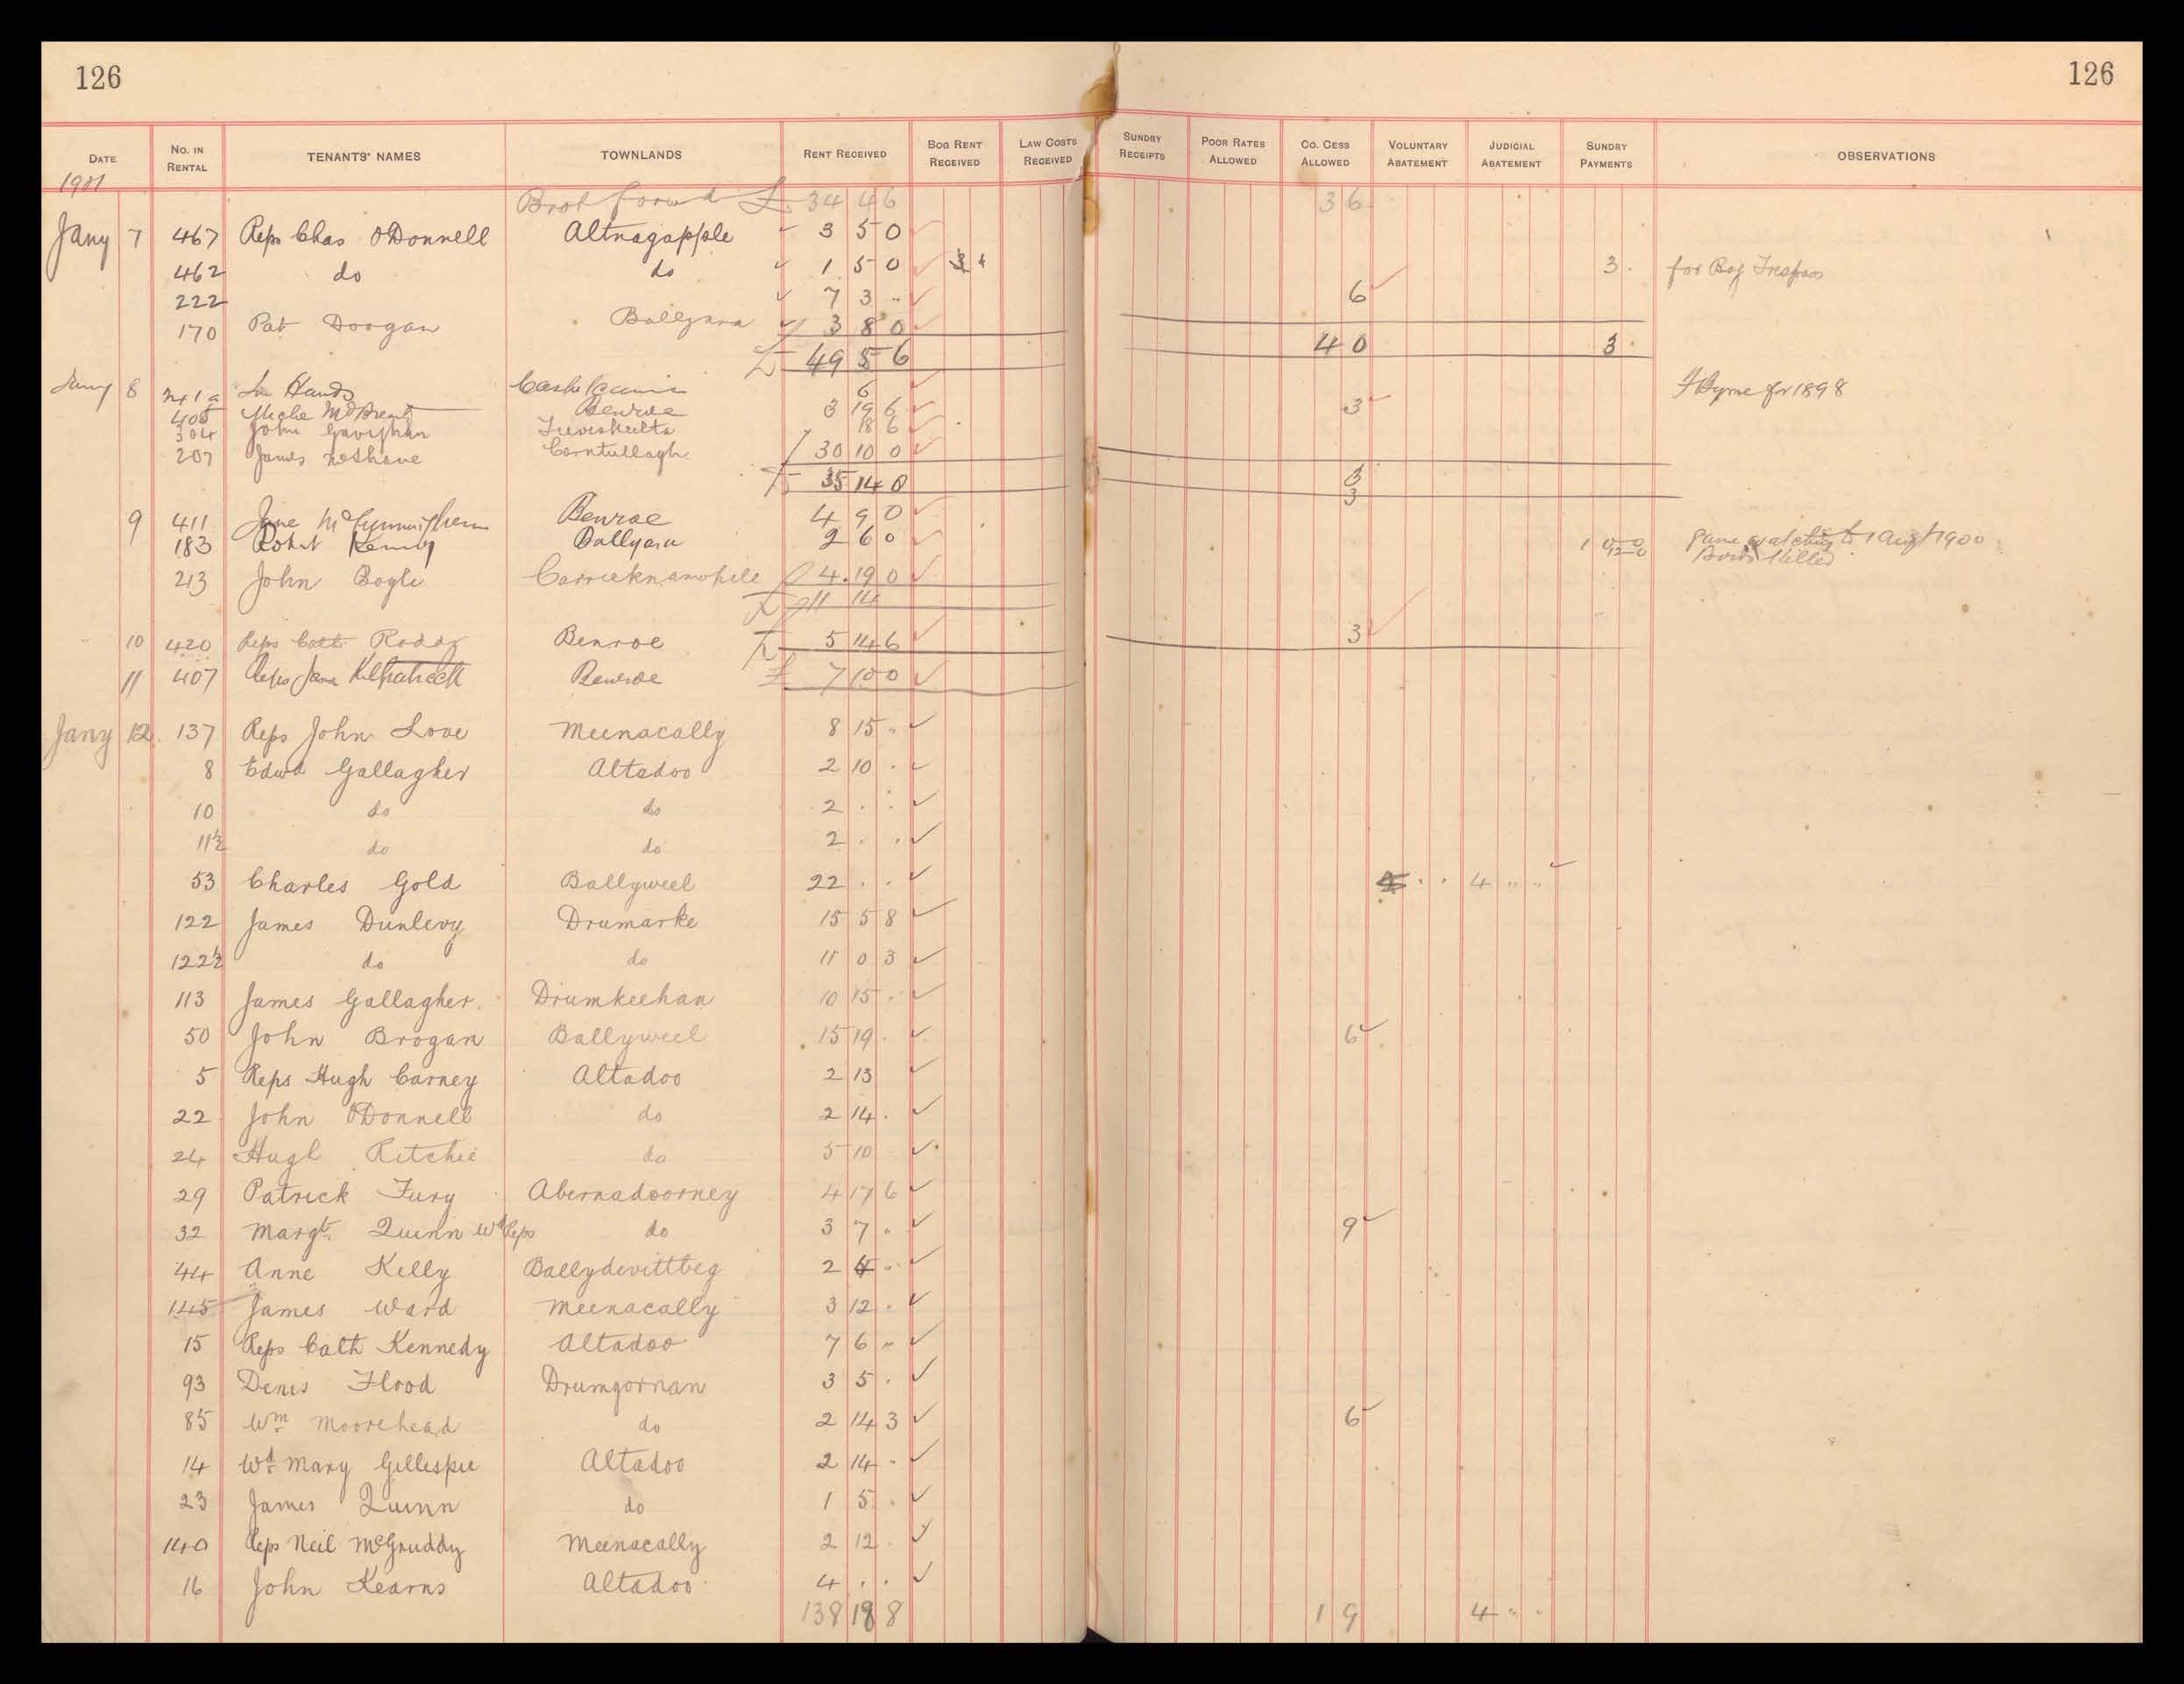 126 126
DATE No. IN RENTAL TENANTS' NAMES TOWNLANDS RENT RECEIVED BOG RENT RECEIVED LAW COSTS RECEIVED SUNDRY RECEIPTS POOR RATES ALLOWED CO. CESS ALLOWED VOLUNTARY ABATEMENT JUDICIAL ABATEMENT SUNDRY PAYMENTS OBSERVATIONS
1901
Brot forwd £ 34 4 6 3 6
Jany 7 467 Reps Chas O'Donnell Altnagapple 3 5 0
462 do do 1 5 0 3 . for Bog Trespass
222 7 3 " 6
170 Pat Doogan Ballyara 3 8 0
£ 49 5 6 4 0 3
Jany 8 In Hands 6 F Byrne for 1898
405 Benroe 3 19 6 3
304 John Gavighan 18 6
207 James Corntullagh 30 10 0
£ 35 14 0 3
9 411 Jane Benroe 4 9 0
183 Robert Ballyara 2 6 0 1 game watching to 1 Augt 1900
killed
213 John Boyle 4 . 19 0
£ 11 14
" 10 420 Reps Cath Roddy Benroe £ 5 14 6 3
11 407 Reps Jane Kilpatrick Benroe £ 7 10 0
Jany 12 . 137 Reps John Love Meenacally 8 15 "
8 Edwd Gallagher Altadoo 2 10 .
10 do do 2 . .
11½ do do 2 . .
53 Charles Gold Ballyweel 22 . . . . 4 " "
122 James Dunlevy Drumarke 15 5 8
122½ do do 11 0 3
113 James Gallagher . Drumkeehan 10 15 .
50 John Brogan Ballyweel 15 19 . 6
5 Reps Hugh Carney Altadoo 2 13
22 John O'Donnell do 2 14 .
24 Hugh Ritchie do 5 10
29 Patrick Fury Abernadoorney 4 17 6
32 Margt. Quinn Wd Reps do 3 7 " 9
44 Anne Kelly Ballydevittbeg 2 4 "
145 James Ward Meenacally 3 12 .
15 Reps Cath Kennedy Altadoo 7 6 "
93 Denis Flood Drumgornan 3 5 .
85 Wm Moorehead do 2 14 3 6
14 Wd. Mary Gillespie Altadoo 2 14 .
23 James Quinn do 1 5 .
140 Reps Neil McGruddy Meenacally 2 12 .
16 John Kearns Altadoo 4 . .
138 18 8 1 9 4 " "